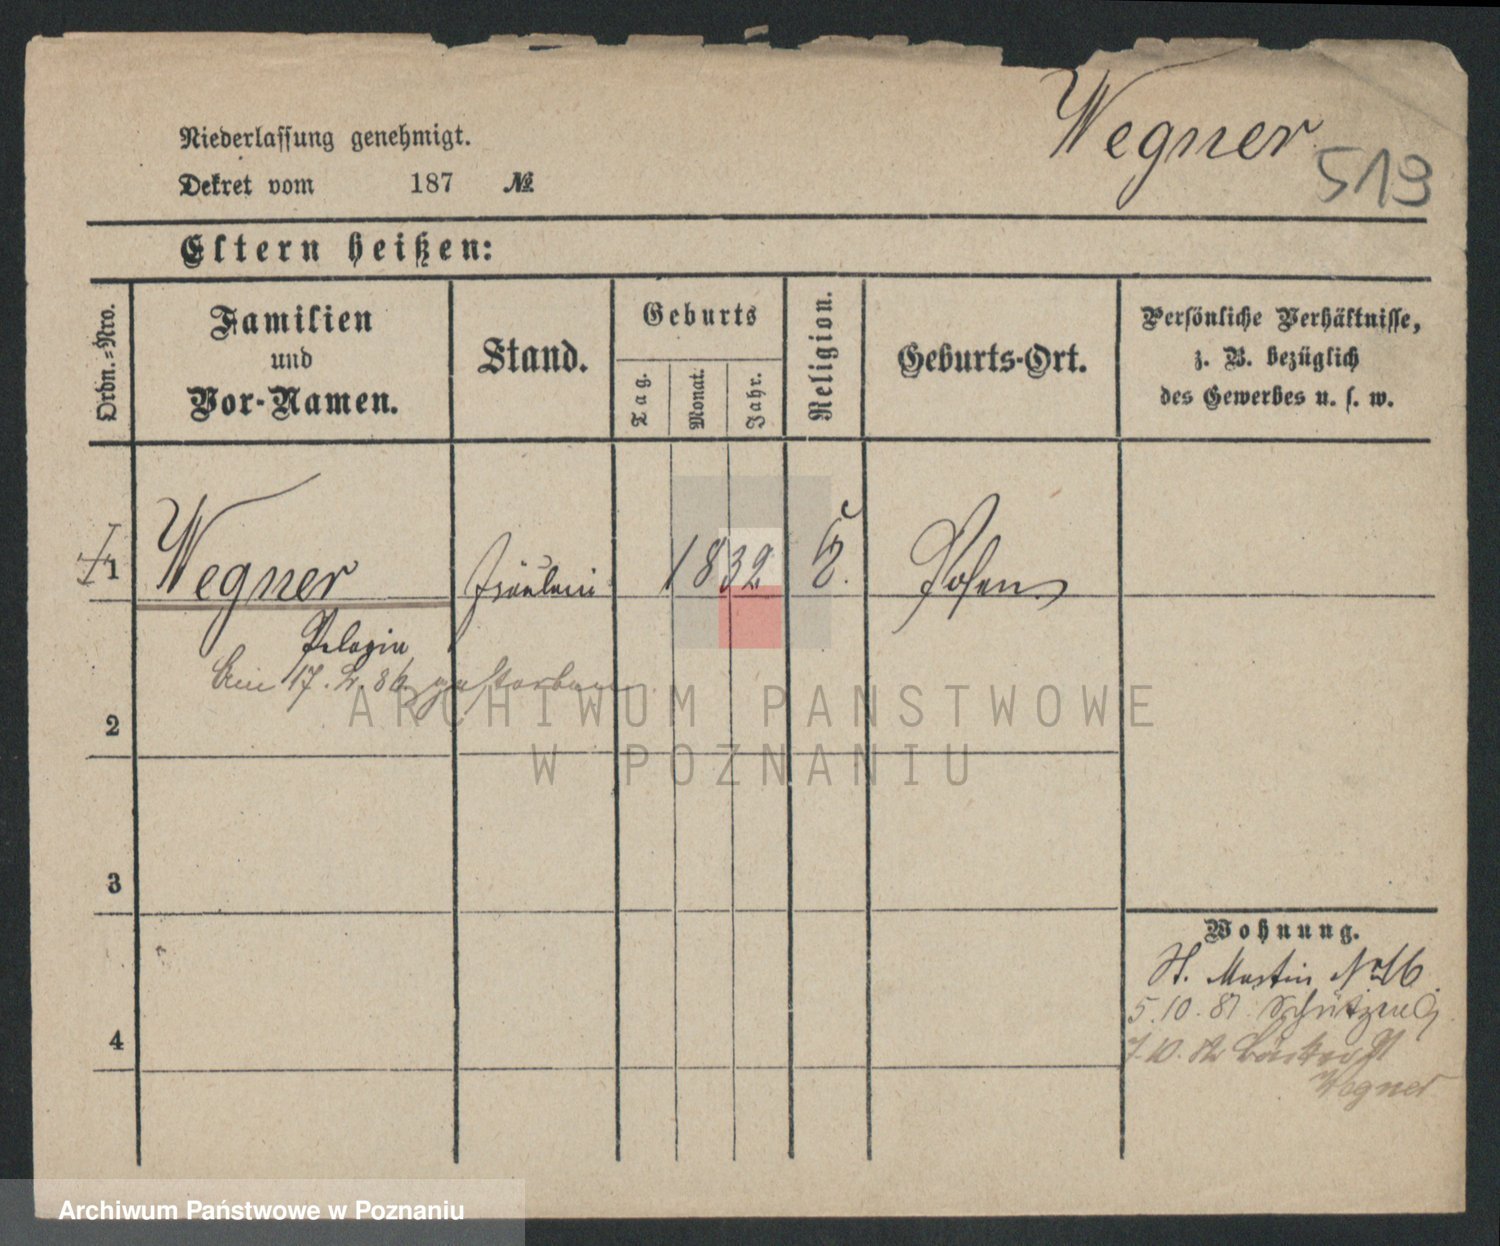 Wegner
519
Niederlassung genehmigt.
Dekret vom 187 №
Eltern heißen:
Ordn.=Nro.
Familien
und
Vor-Namen.
Stand.
Geburts
Tag.
Monat.
Jahr.
Religion.
Geburts-Ort.
Persönliche Verhältnisse,
z. B. bezüglich
des Gewerbes u. s. w.
1
Wegner Fräulein 1832 Posen
Pelagia
17. 2. 86 gestorben
2
3
4
Wohnung.
St. Martin No 16.
5.10.81 Schützen
7.10.82 Bäcker
Wegner
ARCHIWUM PAŃSTWOWE
W POZNANIU
Archiwum Państwowe w Poznaniu